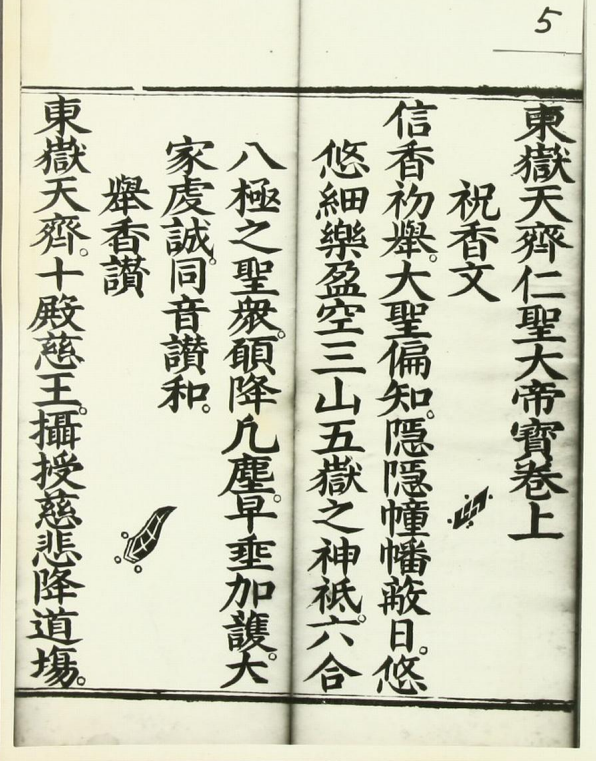 5
東嶽天齊仁聖大帝寳卷上
祝香文
信香初舉。大聖偏知。隠隠幢幡蔽日。悠
悠細樂盈空三山五嶽之神祗。六合
八極之聖衆。願降凢塵。早垂加護。大
家虔誠。同音讃和。
舉香讃
東嶽天齊。十殿慈王。攝授慈悲降道塲。